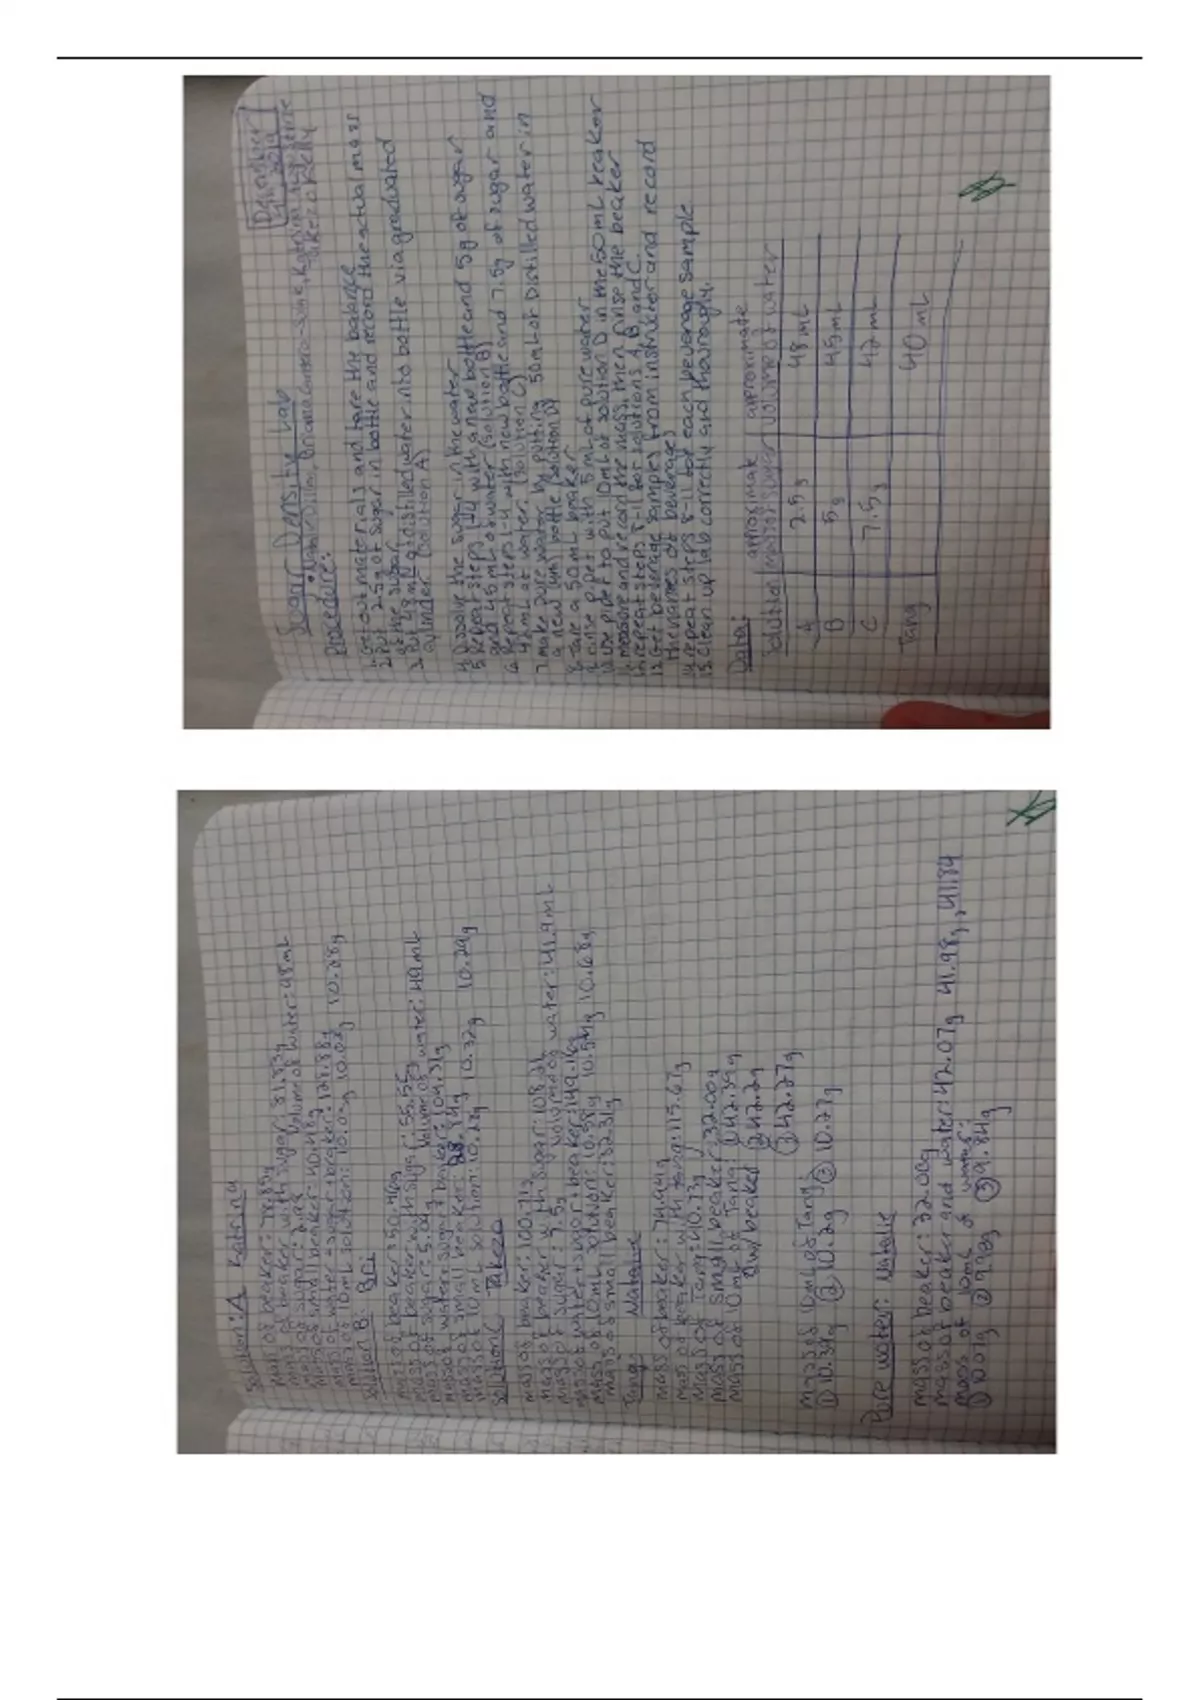 Sugar Density Lab
December
2019
Procedure:
1. Get out materials and tare the balance
2. Put 2.5g of sugar in bottle and record the actual mass
of the sugar
3. Put 48 mL of distilled water into bottle via graduated
cylinder (Solution A)
4. Dissolve the sugar in the water
5. Repeat steps 1-4 with a new bottle and 5g of sugar
and 45 mL of water (solution B)
6. Repeat steps 1-4 with new bottle and 7.5g of sugar and
42 mL of water. (solution C)
7. make pure water by putting 50 mL of Distilled water in
a new bottle (solution D)
8. Take a 50 mL beaker
9. rinse pipet with 5 mL of pure water
10. use pipet to put 10 mL of solution D in the 50 mL beaker
11. measure and record the mass, then rinse the beaker
12. repeat steps 8-11 for solutions A, B, and C.
13. Get beverage samples from instructor and record
the names of beverages
14. repeat steps 8-11 for each beverage sample
15. Clean up lab correctly and thouroughly.
Data:
Solution approximate mass of sugar approximate volume of water
A 2.5g 48mL
B 5g 45mL
C 7.5g 42mL
Tang 40mL
Solution: A Katrina
mass of beaker: 78.89g
mass of beaker with sugar: 81.33g
mass of sugar: volume of water: 48mL
mass of small beaker: 40.48g
mass of water + sugar + beaker: 128.88g
mass of 10mL solution: 10.03g 10.08g 10.08g
Solution B: Bri
mass of beaker: 50.46g
mass of beaker with sugar: 55.55g
mass of sugar: 5.00g volume of water: 49mL
mass of water + sugar + beaker: 104.31g
mass of small beaker:
mass of 10 mL solution: 10.28g 10.32g 10.29g
Solution C Takezo
mass of beaker: 100.71g
mass of beaker with sugar: 108.21
mass of sugar: 7.5g volume of water: 41.9mL
mass of water + sugar + beaker: 149.16g
mass of 10mL solution: 10.58g 10.54g 10.68g
mass of small beaker: 32.31g
Tang: Natalie
mass of beaker: 74.94g
mass of beaker with tang: 115.67g
mass of Tang: 40.73g
mass of small beaker: 32.00g
mass of 10mL of Tang: ① 42.39g
w/beaker ② 42.2g
③ 42.27g
mass of 10mL of Tang:
① 10.39g ② 10.2g ③ 10.27g
Pure water: Natalie
mass of beaker: 32.00g
mass of beaker and water: 42.07g 41.98g, 41.84
mass of 10mL of water:
① 10.07g ② 9.98g ③ 9.84g